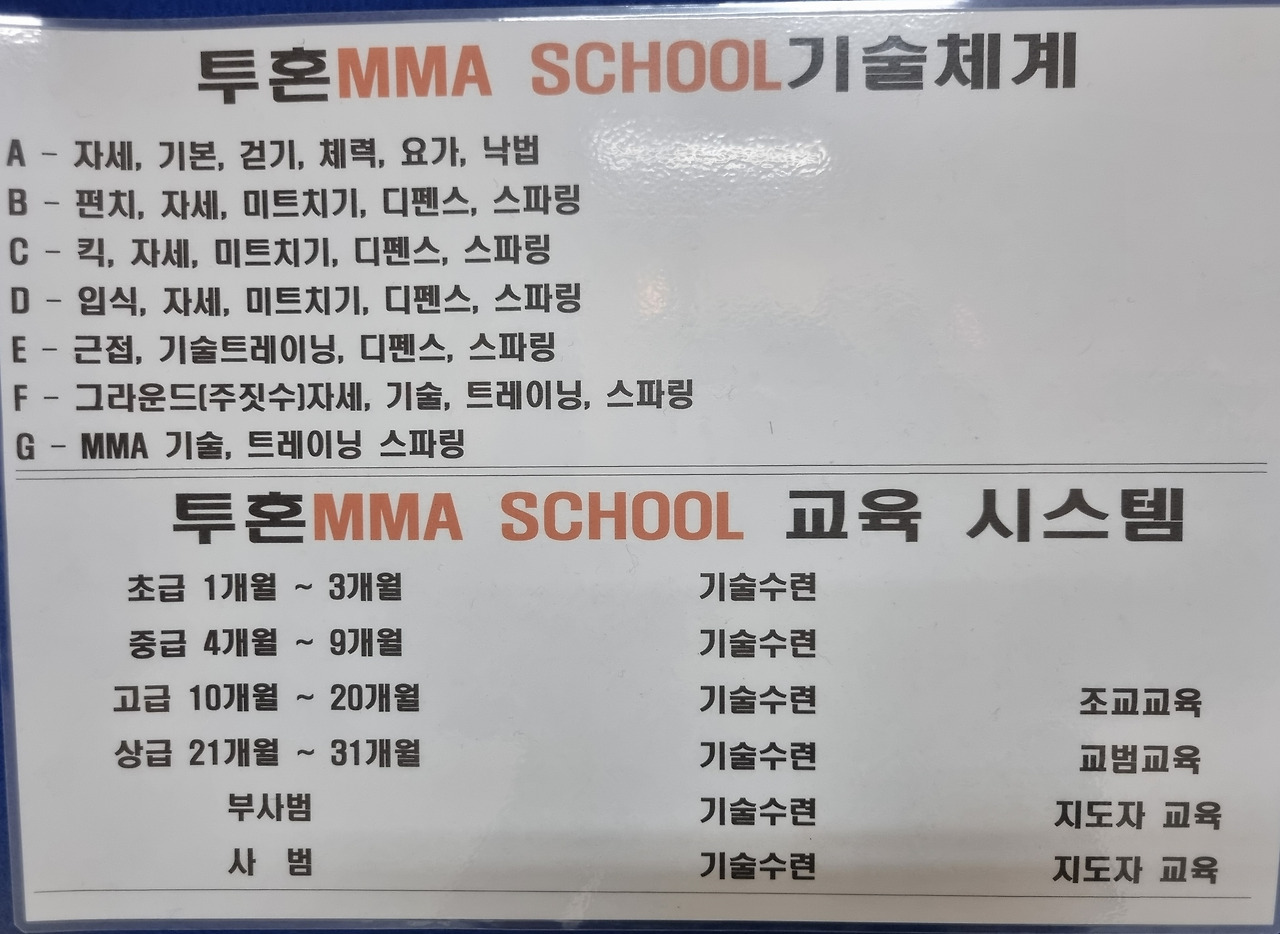 투혼MMA SCHOOL기술체계
A - 자세, 기본, 걷기, 체력, 요가, 낙법
B - 펀치, 자세, 미트치기, 디펜스, 스파링
C - 킥, 자세, 미트치기, 디펜스, 스파링
D - 입식, 자세, 미트치기, 디펜스, 스파링
E - 근접, 기술트레이닝, 디펜스, 스파링
F - 그라운드(주짓수)자세, 기술, 트레이닝, 스파링
G - MMA 기술, 트레이닝 스파링
투혼MMA SCHOOL 교육 시스템
초급 1개월 ~ 3개월 기술수련
중급 4개월 ~ 9개월 기술수련
고급 10개월 ~ 20개월 기술수련 조교교육
상급 21개월 ~ 31개월 기술수련 교범교육
부사범 기술수련 지도자 교육
사 범 기술수련 지도자 교육